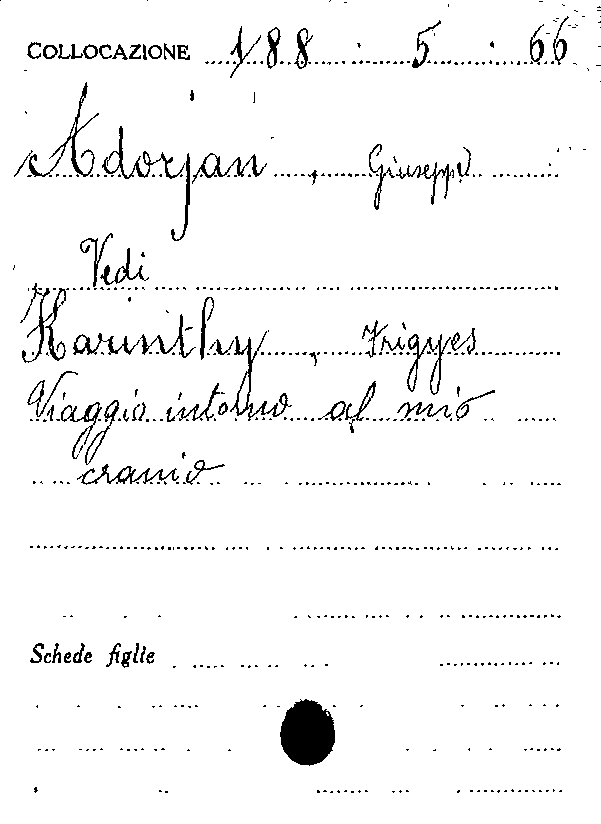 COLLOCAZIONE 1/88 . 5 . 66
Adorjan, Giuseppe
Vedi
Karinthy, Frigyes
Viaggio intorno al mio
cranio
Schede figlie